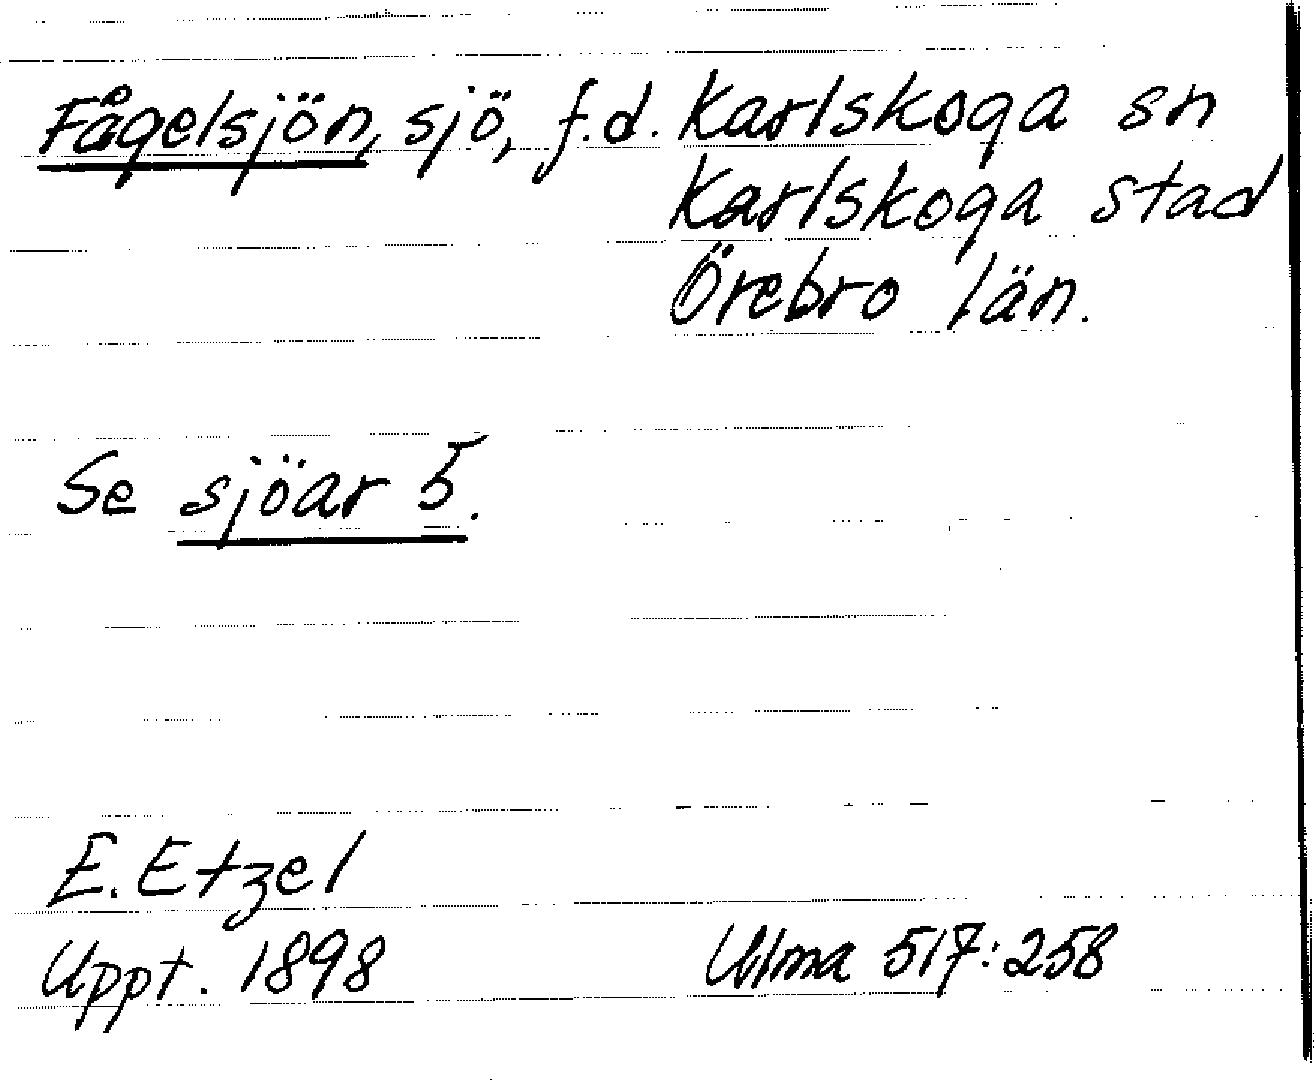 Fågelsjön, sjö, f.d. Karlskoga sn
Karlskoga stad
Örebro län.
Se sjöar 5.
E. Etzel
Uppt. 1898
Ulma 517:258